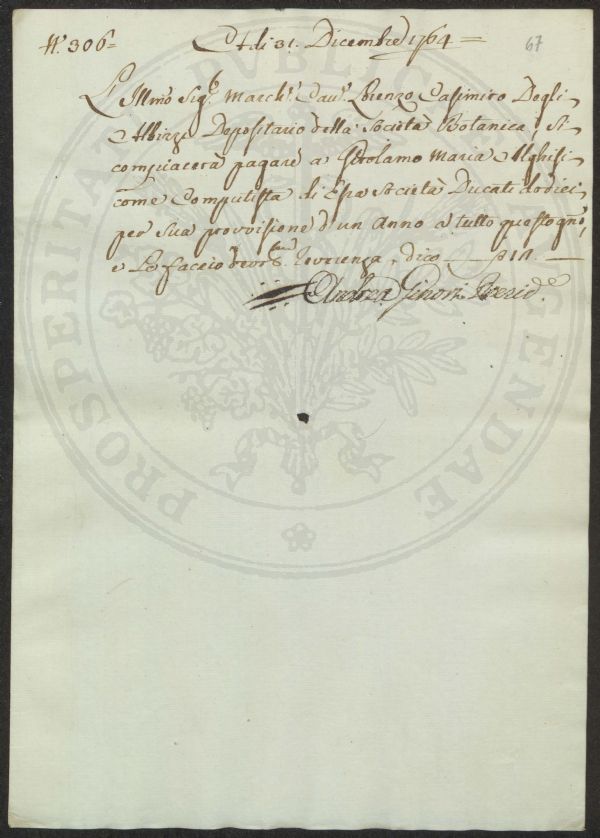 N.º 306= A dì 31. Dicembre 1764= 67
L'Illmo Sig.r March.e Cav.e Lorenzo Casimiro Degli
Albizzi Depositario della Società Botanica, si
compiacerà pagare a Girolamo Maria Alghisi
come Computista di Essa Società Ducati dodici
per sua provvisione d'un Anno a tutto questo gno,
e Le faccio reverenza, dico
Andrea Ginori Presid.e
PUBLICAE
PROSPERITATI
AUGENDAE